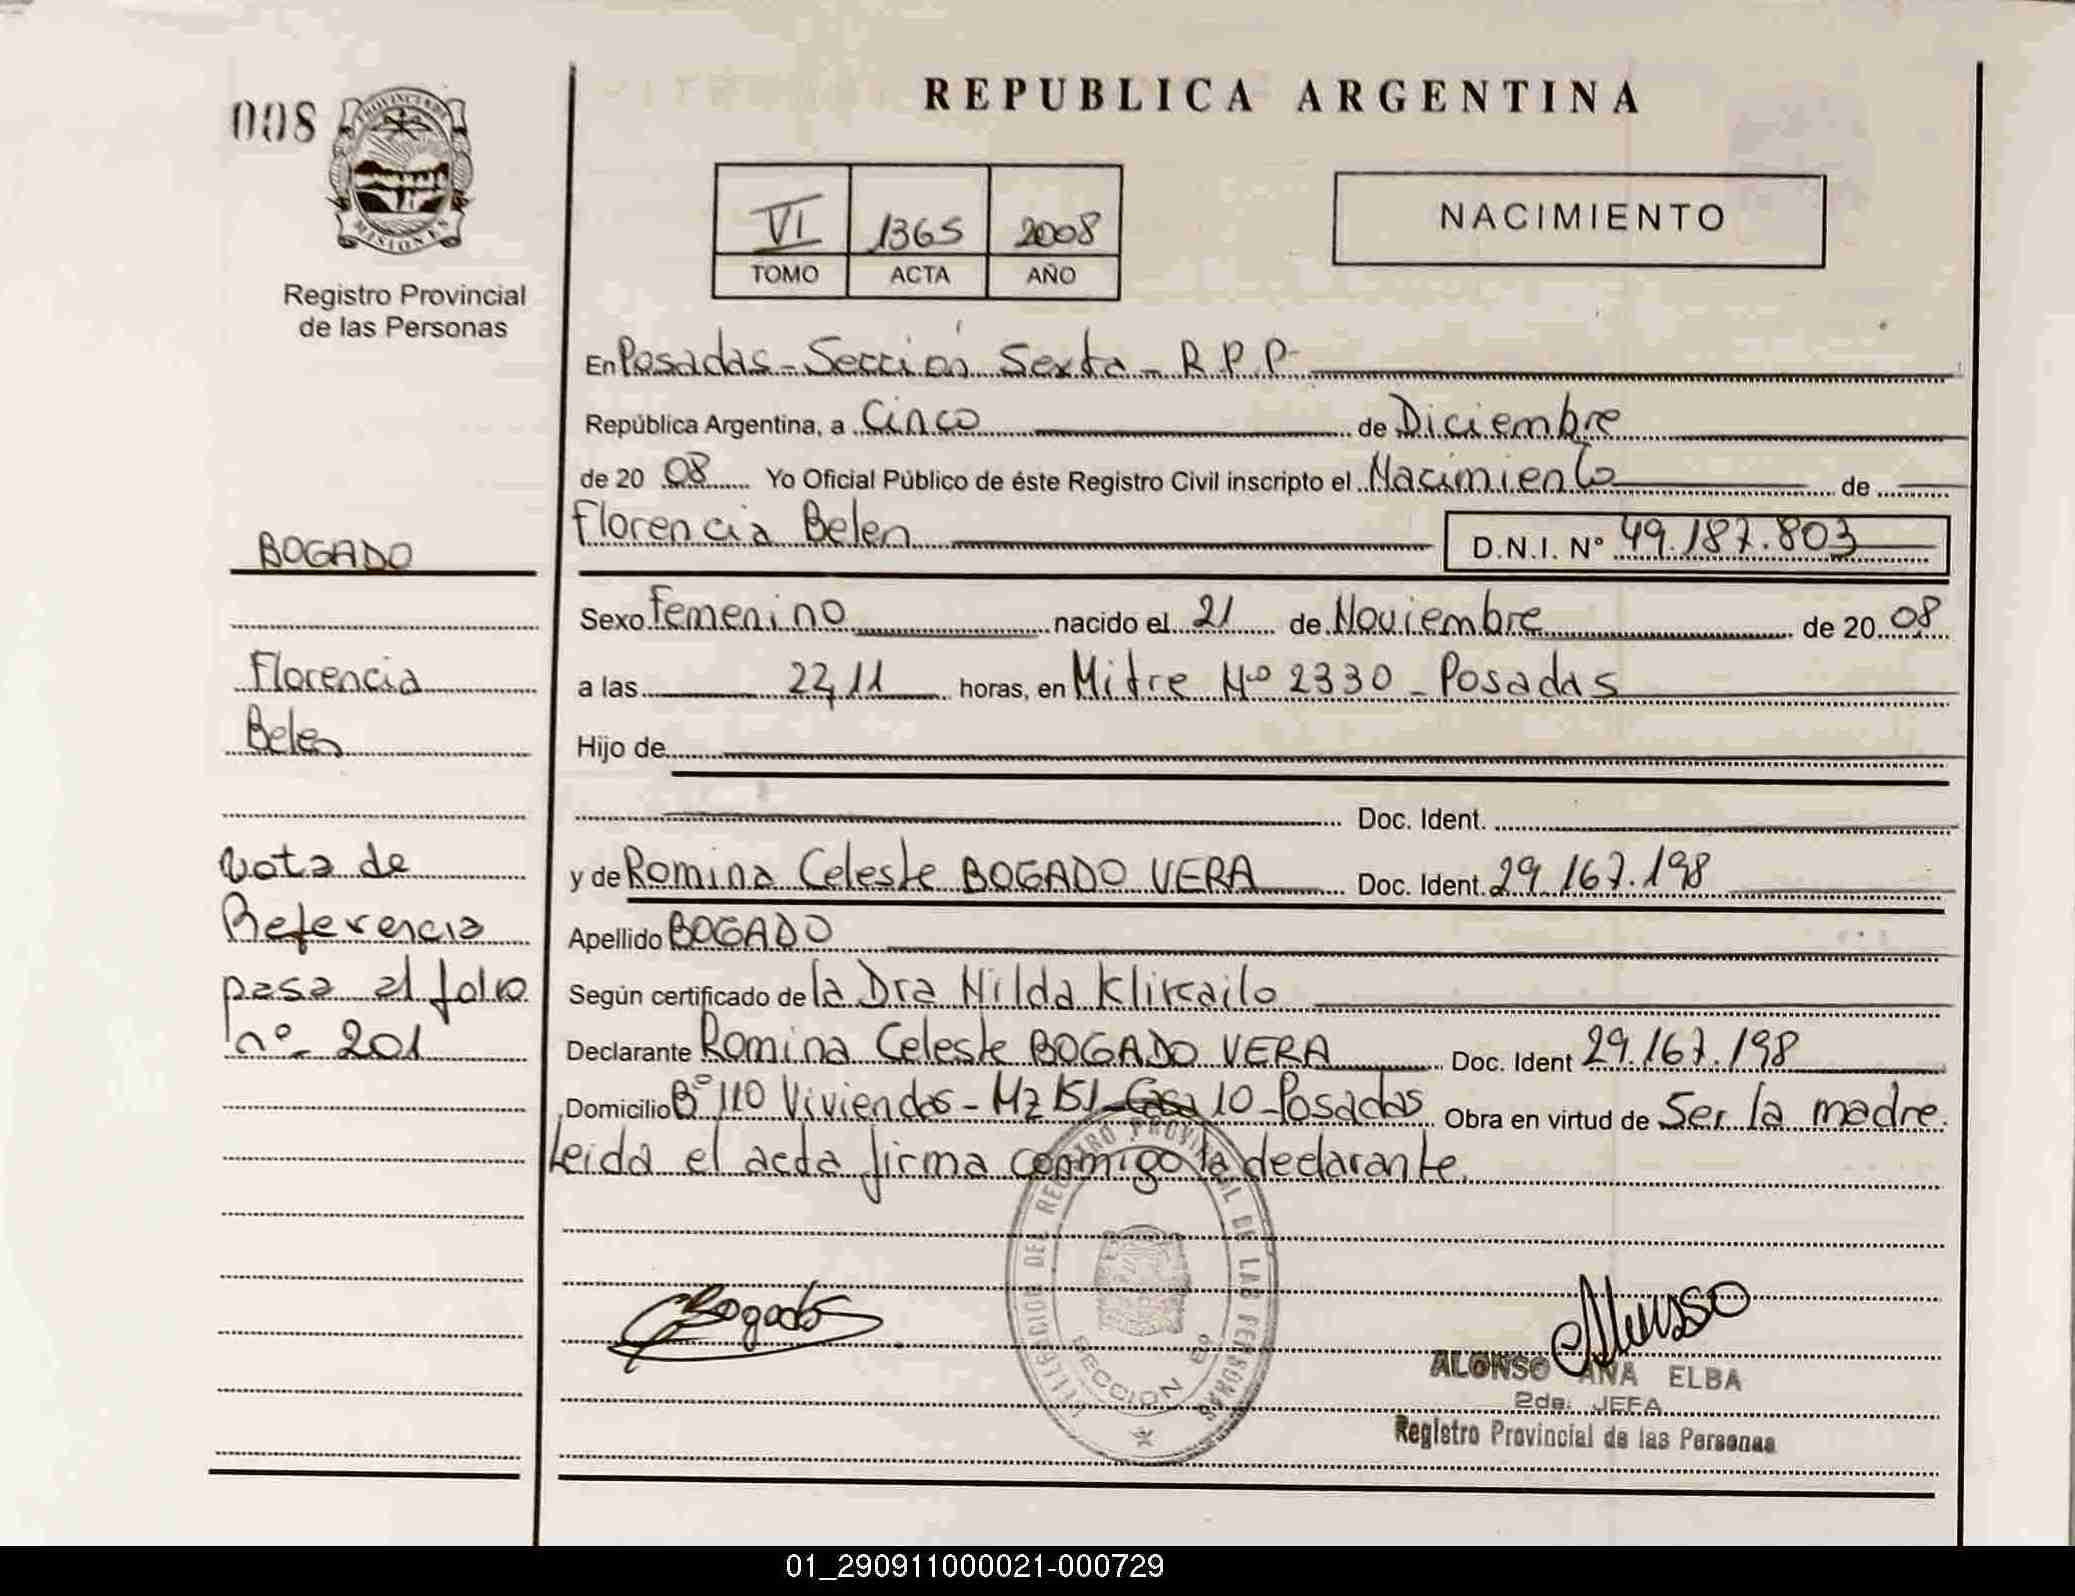 008
PROVINCIA DE
MISIONES
Registro Provincial
de las Personas
BOGADO
Florencia
Belen
Nota de
Referencia
pasa al folio
nº 201
REPUBLICA ARGENTINA
VI 1365 2008
TOMO ACTA AÑO
NACIMIENTO
En Posadas - Sección Sexta - R.P.P.
República Argentina, a Cinco de Diciembre
de 20 08 Yo Oficial Público de éste Registro Civil inscripto el Nacimiento de
Florencia Belen D.N.I. Nº 49.187.803
Sexo Femenino nacido el 21 de Noviembre de 20 08
a las 22,11 horas, en Mitre Nº 2330 - Posadas
Hijo de
Doc. Ident.
y de Romina Celeste BOGADO VERA Doc. Ident. 29.167.198
Apellido BOGADO
Según certificado de la Dra Nilda
Declarante Romina Celeste BOGADO VERA Doc. Ident 29.167.198
Domicilio Bº 110 Viviendas - Mz 151 - Casa 10 - Posadas Obra en virtud de Ser la madre.
Leida el acta firma conmigo la declarante.
DELEGACION DEL REGISTRO PROVINCIAL DE LAS PERSONAS
SECCION 6º
Bogado
ALONSO ANA ELBA
2da. JEFA
Registro Provincial de las Personas
01_290911000021-000729